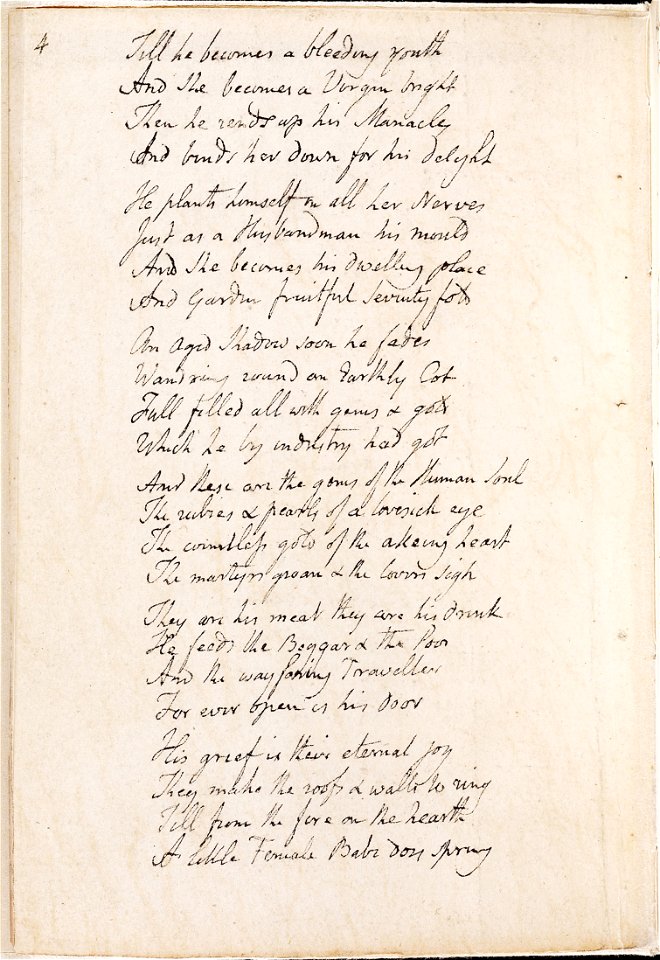 4
Till he becomes a bleeding youth
And She becomes a Virgin bright
Then he rends up his Manacles
And binds her down for his delight
He plants himself in all her Nerves
Just as a Husbandman his mould
And She becomes his dwelling place
And Garden fruitful Seventy fold
An aged Shadow soon he fades
Wandring round an Earthly Cot
Full filled all with gems & gold
Which he by industry had got
And these are the gems of the Human Soul
The rubies & pearls of a lovesick eye
The countless gold of the akeing heart
The martyrs groan & the lovers sigh
They are his meat they are his drink
He feeds the Beggar & the Poor
And the wayfaring Traveller
For ever open is his door
His grief is their eternal joy
They make the roofs & walls to ring
Till from the fire on the hearth
A little Female Babe does spring